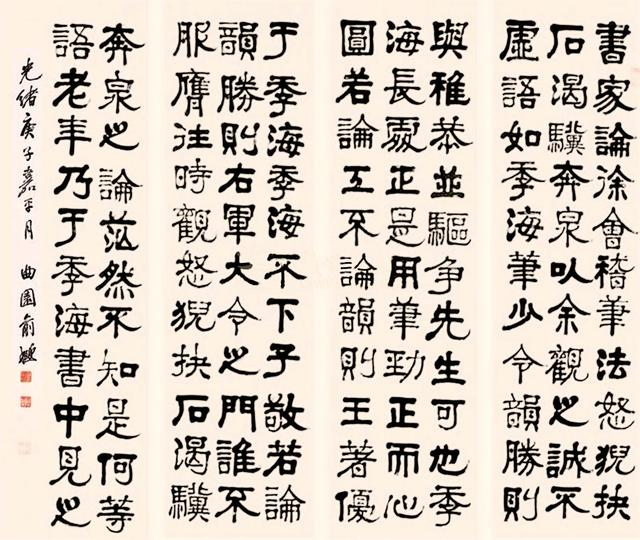 書家論徐會稽筆法怒猊抉
石渴驥奔泉以余觀之誠不
虛語如季海筆少令韻勝則
與稚恭並驅爭先生可也季
海長處正是用筆勁正而心
圓若論工不論韻則王著優
于季海季海不下子敬若論
韻勝則右軍大令之門誰不
服膺往時觀怒猊抉石渴驥
奔泉之論茫然不知是何等
語老年乃于季海書中見之
光緒庚子嘉平月 曲園俞樾